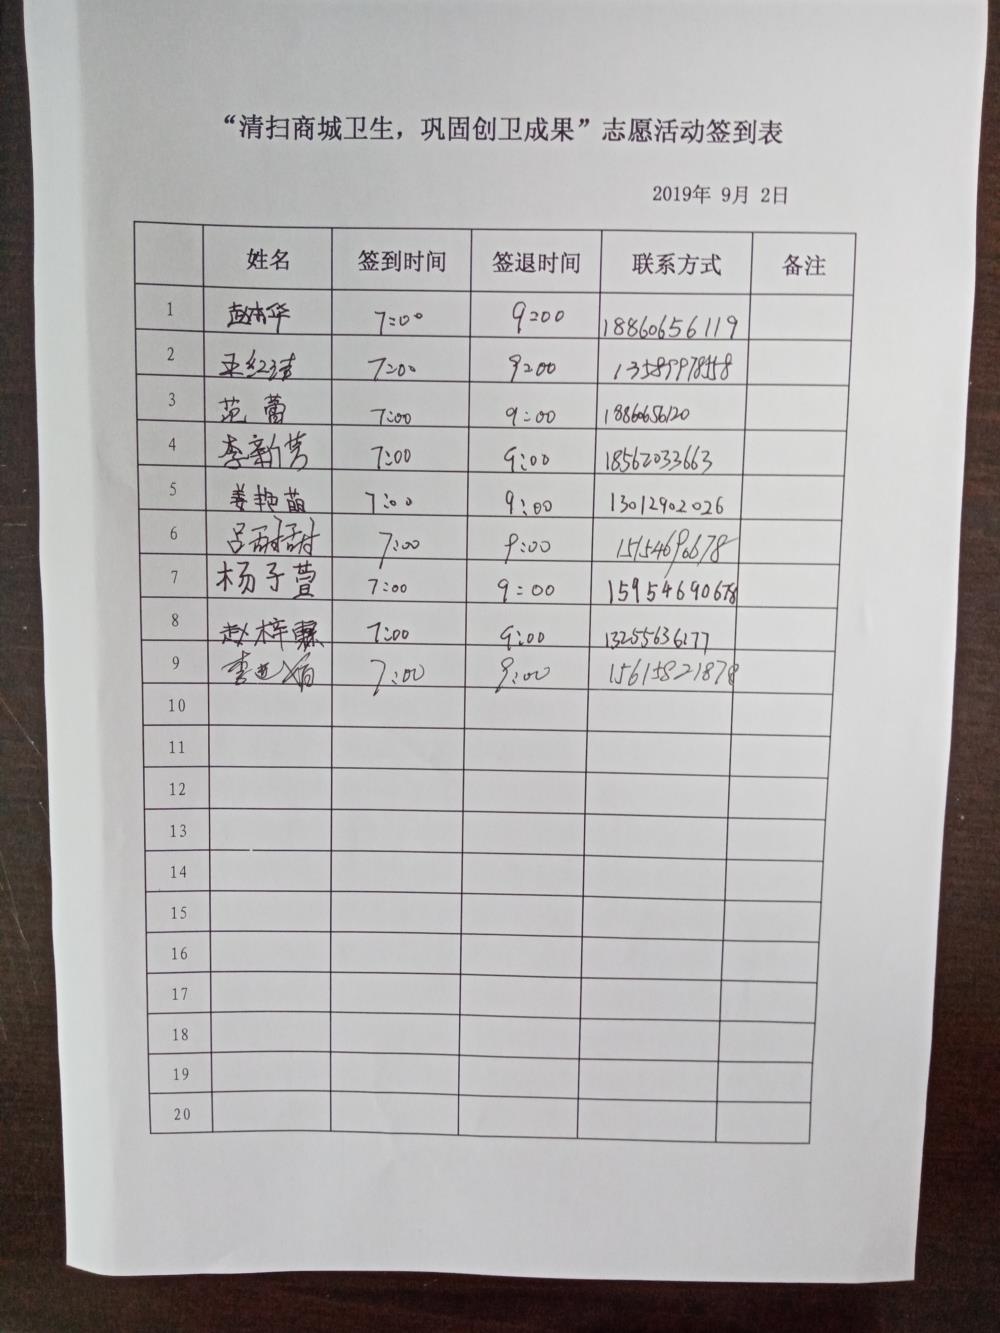 “清扫商城卫生，巩固创卫成果”志愿活动签到表
2019年 9月 2日
姓名 签到时间 签退时间 联系方式 备注
1 7:00 9:00 18860656119
2 7:00 9:00
3 范蕾 7:00 9:00 18860656120
4 李新芳 7:00 9:00 18562033663
5 姜艳萌 7:00 9:00 13012902026
6 吕甜甜 7:00 9:00
7 杨子萱 7:00 9:00 15954690678
8 赵梓 7:00 9:00 13255636177
9 李 7:00 9:00 15615821878
10
11
12
13
14
15
16
17
18
19
20